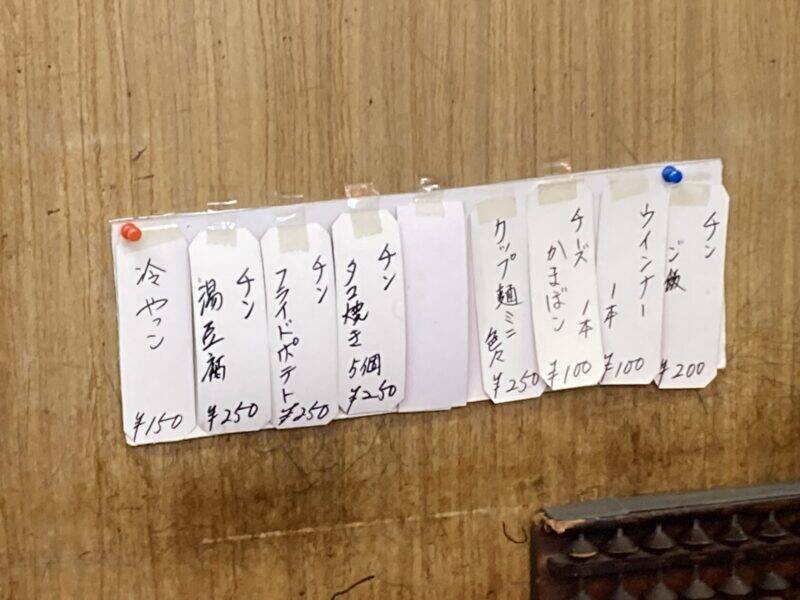 チン
ジ飯
¥200
ウインナー
1本
¥100
チーズ
かまぼこ
1本
¥100
カップ麺ミニ
色々
¥250
チン
タコ焼き
5個
¥250
チン
フライドポテト
¥250
チン
湯豆腐
¥250
冷やっこ
¥150